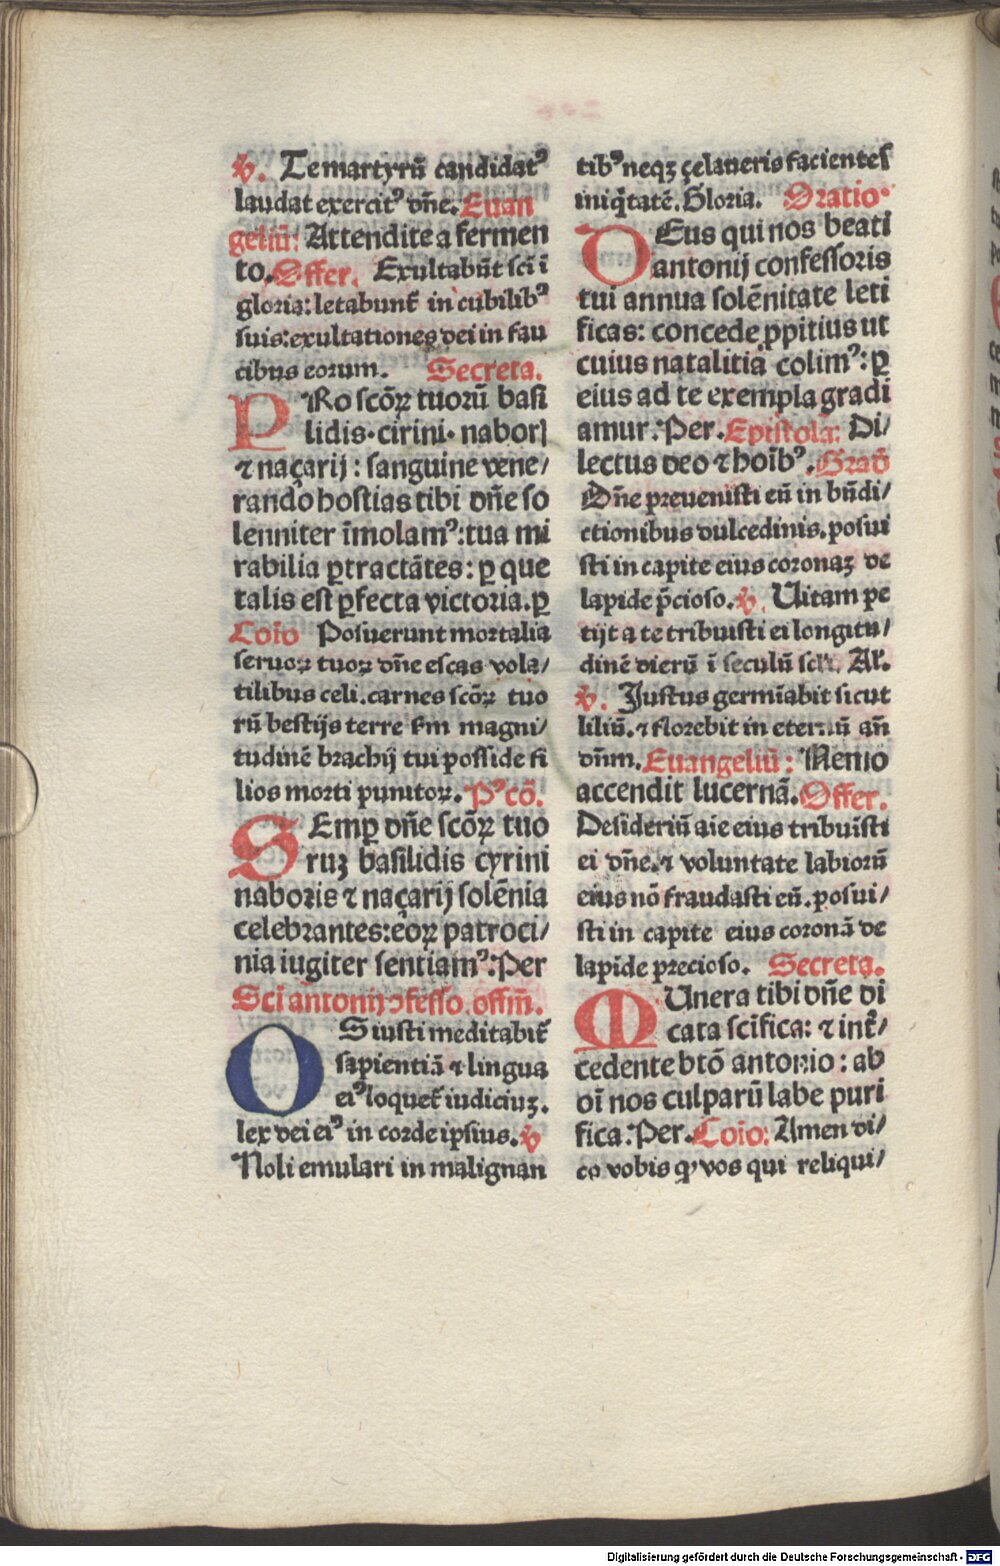 ℣. Te martyrũ candidatꝰ
laudat exercitꝰ dñe. Euan
geliũ: Attendite a fermen
to. Offer. Exultabũt sci ĩ
gloria: letabunt̃ in cubilibꝰ
suis: exultationes dei in fau
cibus eorum. Secreta.
PRo scõꝝ tuorũ basi
lidis. cirini. naboris
⁊ naçarij: sanguine vene/
rando hostias tibi dñe so
lenniter ĩmolamꝰ: tua mi
rabilia ꝑtractãtes: ꝑ que
talis est ꝑfecta victoria. ꝑ
Coĩo Posuerunt mortalia
seruoꝝ tuoꝝ dñe escas vola/
tilibus celi. carnes scõꝝ tuo
rũ bestijs terre ẜm magni/
tudinẽ brachij tui posside fi
lios morti punitoꝝ. Pꝰcõ.
SEmꝑ dñe scõꝝ tuo
ruꝫ basilidis cyrini
naboris ⁊ naçarij solẽnia
celebrantes: eoꝝ patroci/
nia iugiter sentiamꝰ: Per
Sci antonij ↄfesso. offm̃.
OS iusti meditabit̃
sapientiã ⁊ lingua
eiꝰ loquet̃ iudiciuꝫ.
lex dei eiꝰ in corde ipsius. ℣
Noli emulari in malignan
tibꝰ neqꝫ çelaueris facientes
iniq̃tatẽ. Gloria. Oratio
DEus qui nos beati
antonij confessoris
tui annua solẽnitate leti
ficas: concede ꝓpitius ut
cuius natalitia colimꝰ: ꝑ
eius ad te exempla gradi
amur. Per. Epistola: Di/
lectus deo ⁊ hoĩbꝰ. Grad̃
Dñe preuenisti eũ in bñdi/
ctionibus dulcedinis. posui
sti in capite eius coronaꝫ de
lapide p̃cioso. ℣. Uitam pe
tijt a te tribuisti ei longitu/
dinẽ dierũ ĩ seculũ scl̃i. Al̃.
℣. Justus germĩabit sicut
liliũ. ⁊ florebit in eternũ añ
dñm. Euangeliũ: Nemo
accendit lucernã. Offer.
Desideriũ aĩe eius tribuisti
ei dñe. ⁊ voluntate labiorũ
eius nõ fraudasti eũ. posui/
sti in capite eius coronã de
lapide precioso. Secreta.
MUnera tibi dñe di
cata scĩfica: ⁊ int̃/
cedente btõ antonio: ab
oĩ nos culparũ labe puri
fica. Per. Coĩo: Amen di/
co vobis ꝙ vos qui reliqui/
Digitalisierung gefördert durch die Deutsche Forschungsgemeinschaft - DFG